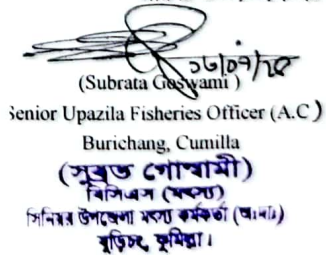 (Subrata Goswami )
Senior Upazila Fisheries Officer (A.C)
Burichang, Cumilla
(সুব্রত গোস্বামী)
বিসিএস (মৎস্য)
সিনিয়র উপজেলা মৎস্য কর্মকর্তা (অঃদাঃ)
বুড়িচং, কুমিল্লা।